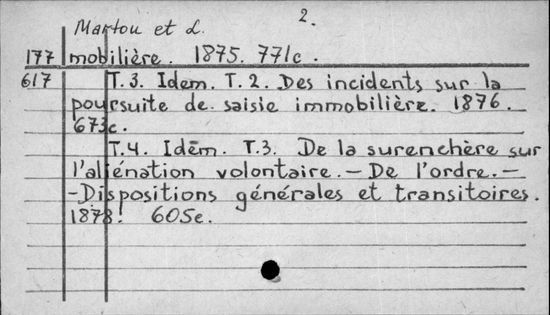 2.
Martou et L.
177 mobilière. 1875. 771c.
617 T.3. Idem. T.2. Des incidents sur la
poursuite de saisie immobilière. 1876.
673c.
T.4. Idem. T.3. De la surenchère sur
l'aliénation volontaire. – De l'ordre. –
-Dispositions générales et transitoires.
1878. 605c.